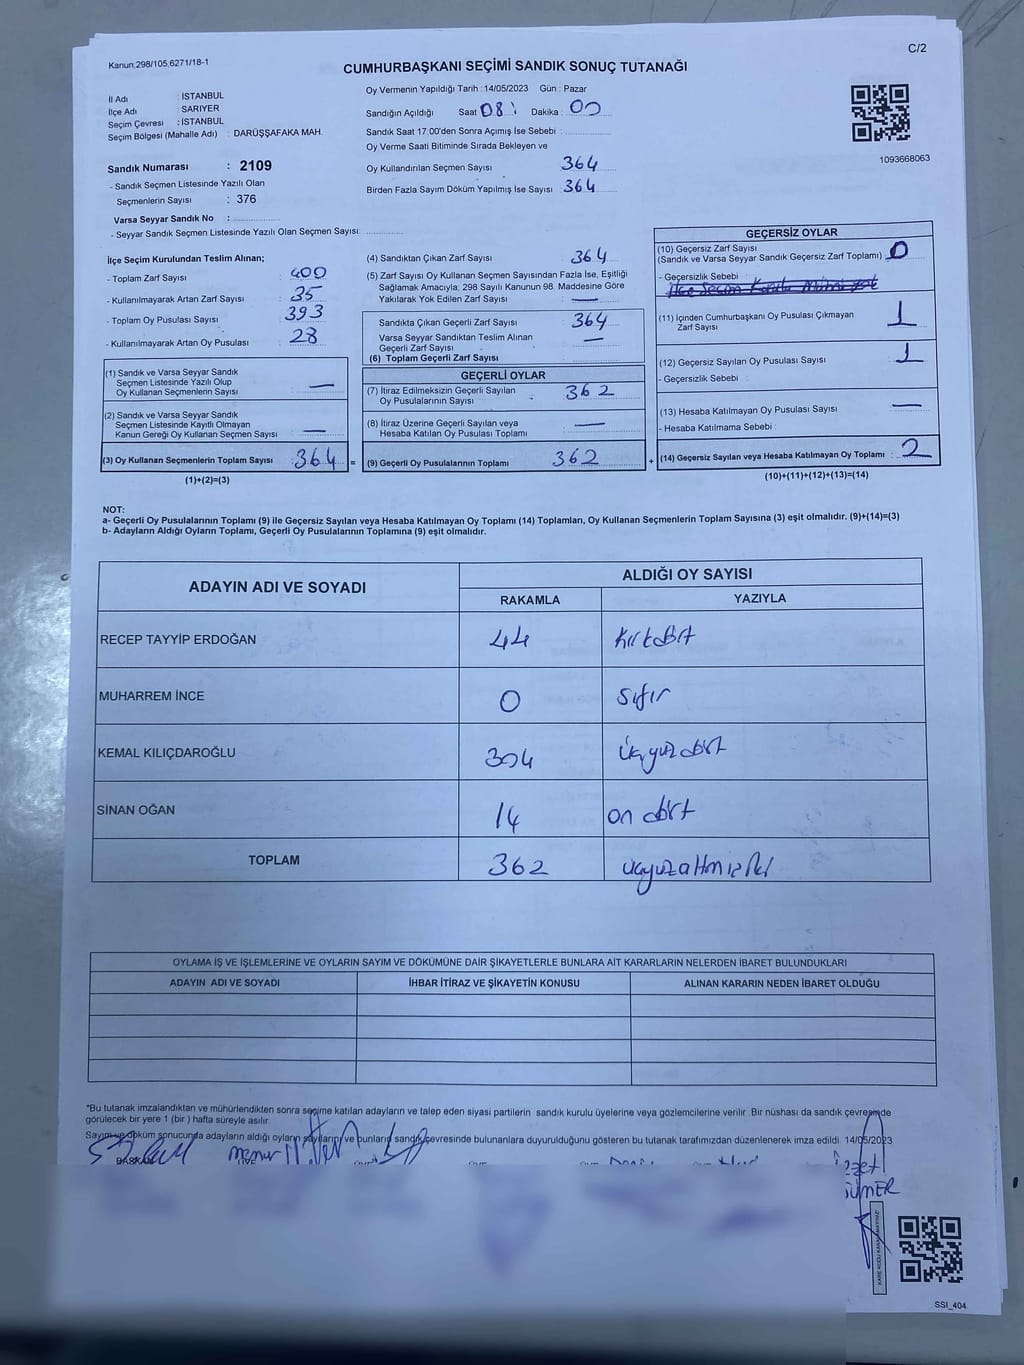 C/2
Kanun;298/105;6271/18-1
CUMHURBAŞKANI SEÇİMİ SANDIK SONUÇ TUTANAĞI
İl Adı : İSTANBUL
İlçe Adı : SARIYER
Seçim Çevresi : İSTANBUL
Seçim Bölgesi (Mahalle Adı) : DARÜŞŞAFAKA MAH.
Oy Vermenin Yapıldığı Tarih : 14/05/2023 Gün : Pazar
Sandığın Açıldığı Saat 08: Dakika : 00
Sandık Saat 17.00'den Sonra Açımış İse Sebebi :
Oy Verme Saati Bitiminde Sırada Bekleyen ve
Oy Kullandırılan Seçmen Sayısı 364
Birden Fazla Sayım Döküm Yapılmış İse Sayısı : 364
1093668063
Sandık Numarası : 2109
- Sandık Seçmen Listesinde Yazılı Olan
Seçmenlerin Sayısı : 376
Varsa Seyyar Sandık No :
- Seyyar Sandık Seçmen Listesinde Yazılı Olan Seçmen Sayısı:
İlçe Seçim Kurulundan Teslim Alınan;
- Toplam Zarf Sayısı : 400
- Kullanılmayarak Artan Zarf Sayısı : 35
- Toplam Oy Pusulası Sayısı : 393
- Kullanılmayarak Artan Oy Pusulası : 28
(1) Sandık ve Varsa Seyyar Sandık
Seçmen Listesinde Yazılı Olup
Oy Kullanan Seçmenlerin Sayısı : —
(2) Sandık ve Varsa Seyyar Sandık
Seçmen Listesinde Kayıtlı Olmayan
Kanun Gereği Oy Kullanan Seçmen Sayısı : —
(3) Oy Kullanan Seçmenlerin Toplam Sayısı : 364 =
(1)+(2)=(3)
(4) Sandıktan Çıkan Zarf Sayısı : 364
(5) Zarf Sayısı Oy Kullanan Seçmen Sayısından Fazla İse, Eşitliği
Sağlamak Amacıyla; 298 Sayılı Kanunun 98. Maddesine Göre
Yakılarak Yok Edilen Zarf Sayısı : —
Sandıkta Çıkan Geçerli Zarf Sayısı : 364
Varsa Seyyar Sandıktan Teslim Alınan
Geçerli Zarf Sayısı : —
(6) Toplam Geçerli Zarf Sayısı :
GEÇERLİ OYLAR
(7) İtiraz Edilmeksizin Geçerli Sayılan
Oy Pusulalarının Sayısı : 362
(8) İtiraz Üzerine Geçerli Sayılan veya
Hesaba Katılan Oy Pusulası Toplamı : —
(9) Geçerli Oy Pusulalarının Toplamı : 362 +
GEÇERSİZ OYLAR
(10) Geçersiz Zarf Sayısı
(Sandık ve Varsa Seyyar Sandık Geçersiz Zarf Toplamı) : 0
- Geçersizlik Sebebi :
(11) İçinden Cumhurbaşkanı Oy Pusulası Çıkmayan
Zarf Sayısı : 1
(12) Geçersiz Sayılan Oy Pusulası Sayısı : 1
- Geçersizlik Sebebi :
(13) Hesaba Katılmayan Oy Pusulası Sayısı : —
- Hesaba Katılmama Sebebi :
(14) Geçersiz Sayılan veya Hesaba Katılmayan Oy Toplamı : 2
(10)+(11)+(12)+(13)=(14)
NOT:
a- Geçerli Oy Pusulalarının Toplamı (9) ile Geçersiz Sayılan veya Hesaba Katılmayan Oy Toplamı (14) Toplamları, Oy Kullanan Seçmenlerin Toplam Sayısına (3) eşit olmalıdır. (9)+(14)=(3)
b- Adayların Aldığı Oyların Toplamı, Geçerli Oy Pusulalarının Toplamına (9) eşit olmalıdır.
ADAYIN ADI VE SOYADI
ALDIĞI OY SAYISI
RAKAMLA YAZIYLA
RECEP TAYYİP ERDOĞAN 44 kırkdört
MUHARREM İNCE 0 sıfır
KEMAL KILIÇDAROĞLU 304 üçyüzdört
SİNAN OĞAN 14 on dört
TOPLAM 362 üçyüzaltmışiki
OYLAMA İŞ VE İŞLEMLERİNE VE OYLARIN SAYIM VE DÖKÜMÜNE DAİR ŞİKAYETLERLE BUNLARA AİT KARARLARIN NELERDEN İBARET BULUNDUKLARI
ADAYIN ADI VE SOYADI İHBAR İTİRAZ VE ŞİKAYETİN KONUSU ALINAN KARARIN NEDEN İBARET OLDUĞU
*Bu tutanak imzalandıktan ve mühürlendikten sonra seçime katılan adayların ve talep eden siyasi partilerin sandık kurulu üyelerine veya gözlemcilerine verilir. Bir nüshası da sandık çevresinde
görülecek bir yere 1 (bir) hafta süreyle asılır.
Sayım ve döküm sonucunda adayların aldığı oyların sayılarını ve bunların sandık çevresinde bulunanlara duyurulduğunu gösteren bu tutanak tarafımızdan düzenlenerek imza edildi. 14/05/2023
BAŞKAN
SSI_404